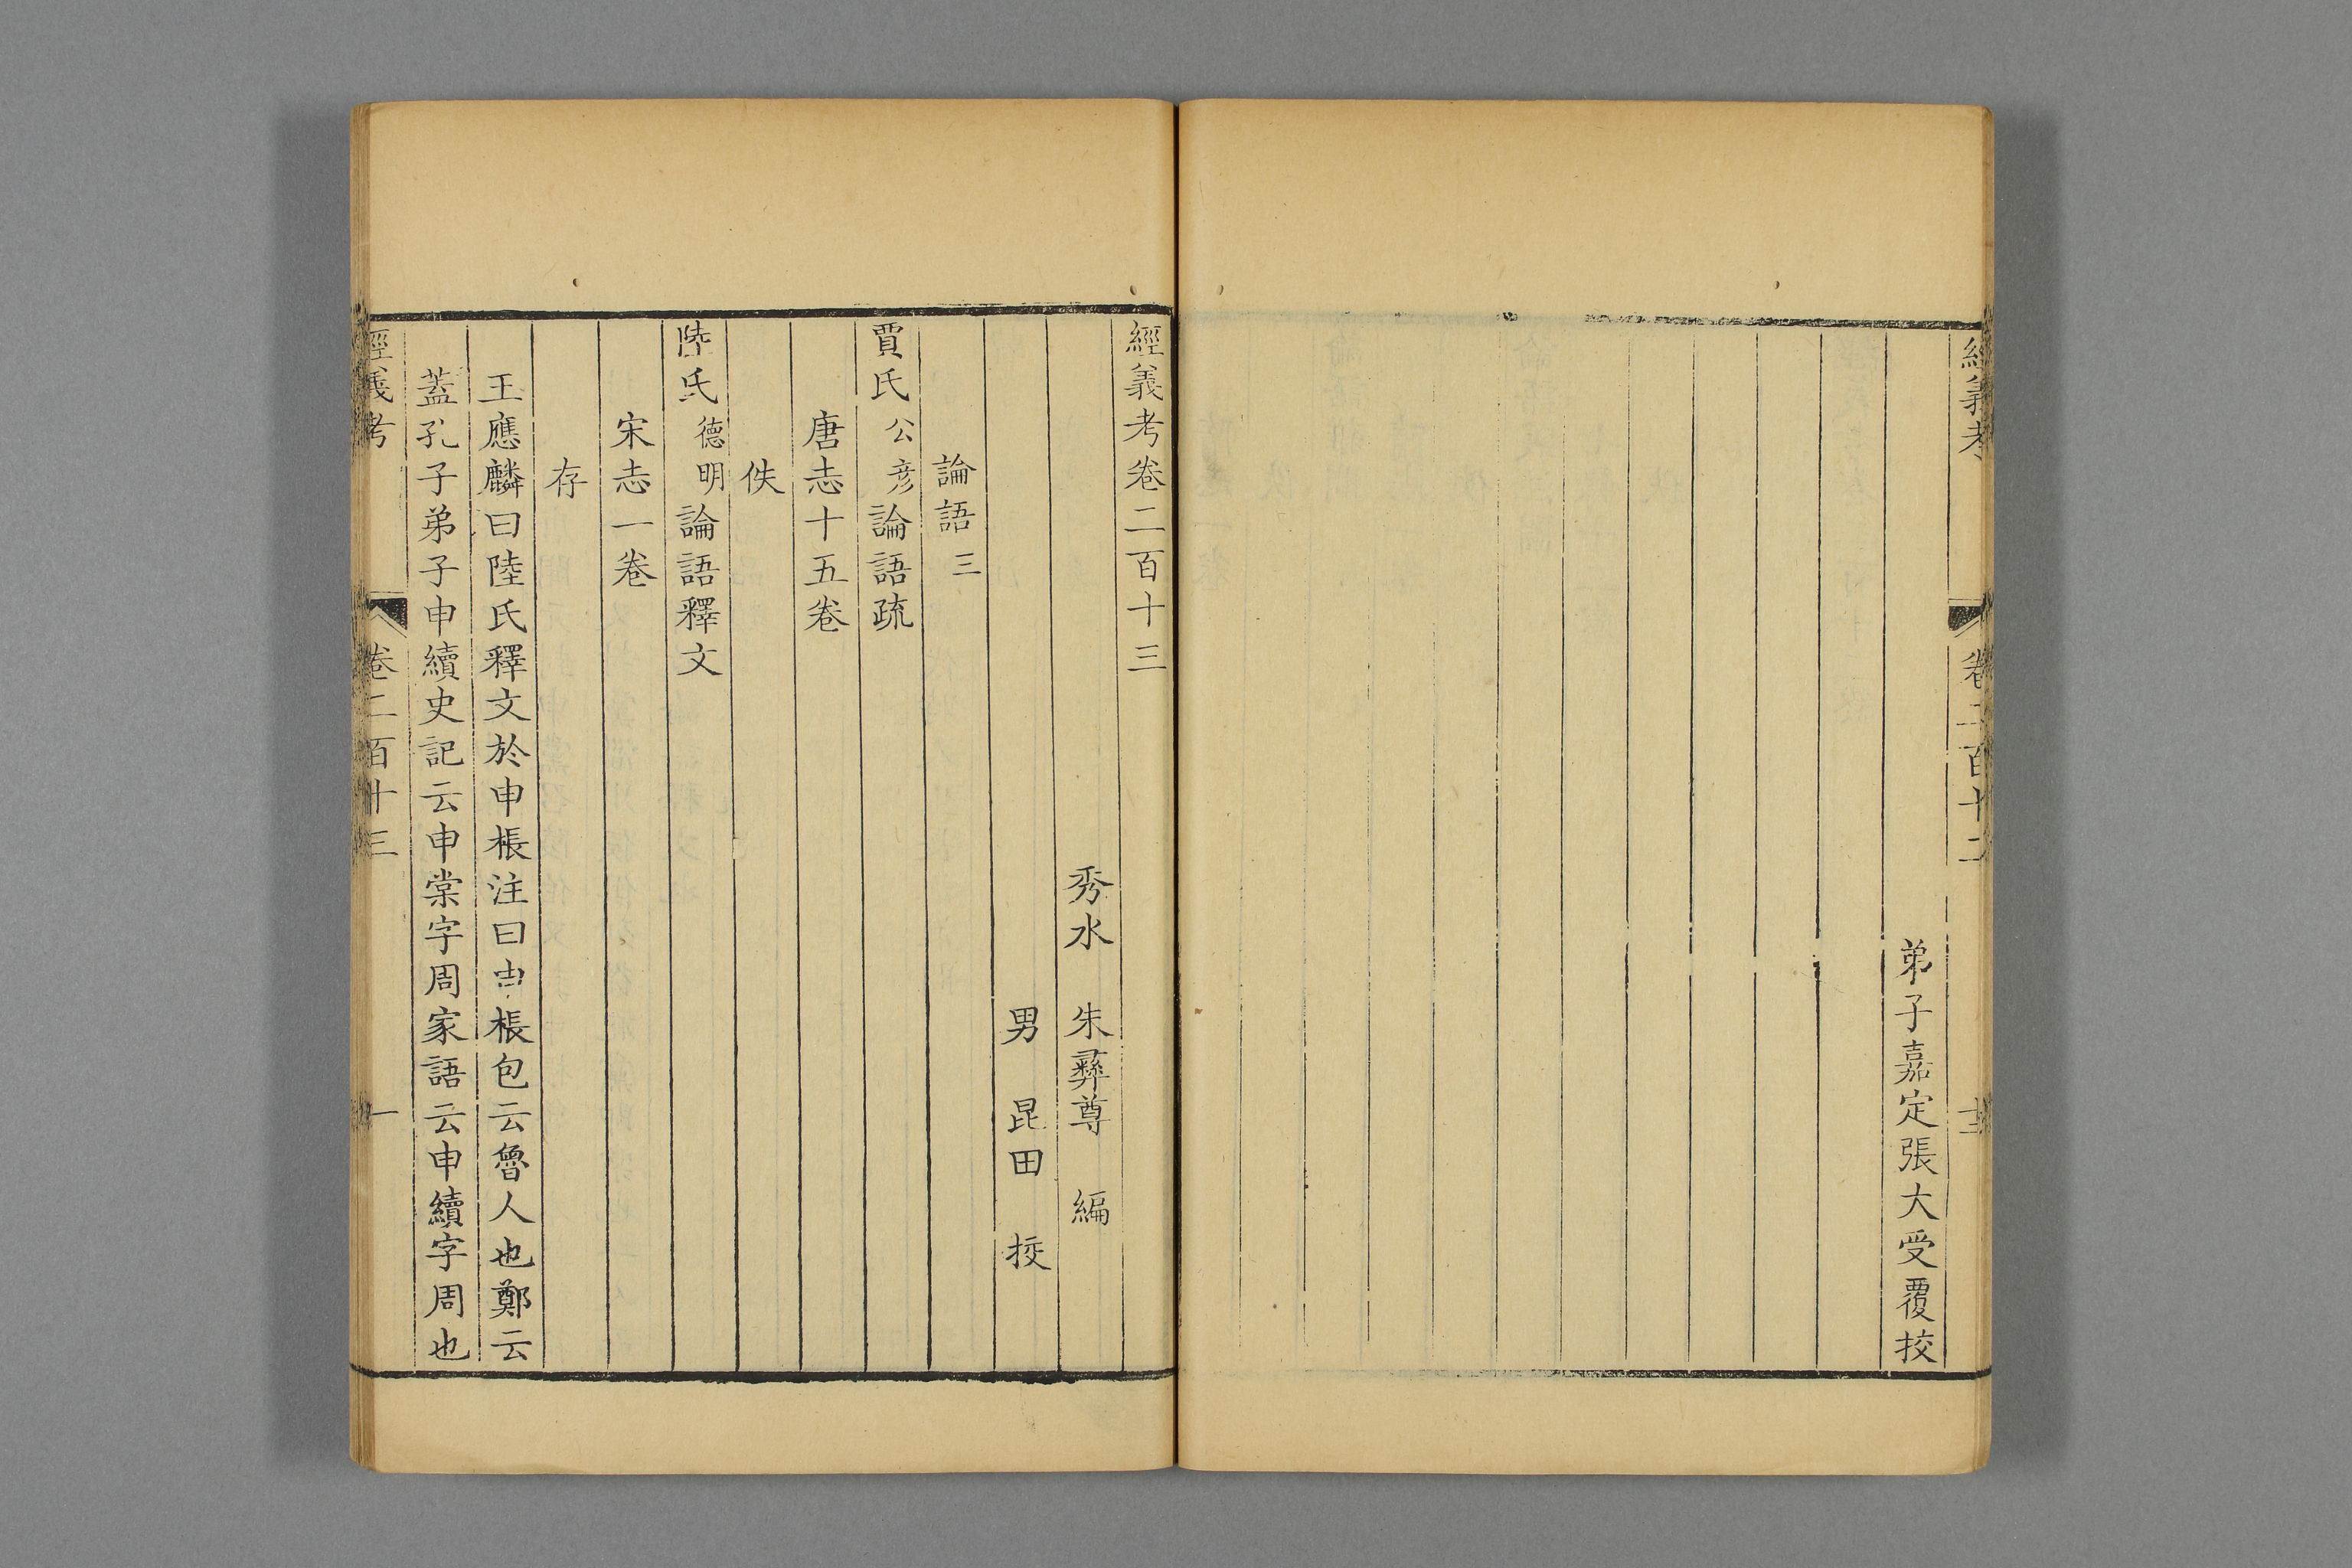 經義考
卷二百十二
弟子嘉定張大受覆挍
經義考卷二百十三
秀水 朱彝尊 編
男 昆田 挍
論語三
賈氏公彦論語疏
唐志十五卷
佚
陸氏德明論語釋文
宋志一卷
存
王應麟曰陸氏釋文於申棖注曰申棖包云魯人也鄭云
蓋孔子弟子申續史記云申棠字周家語云申續字周也
經義考
卷二百十三
一